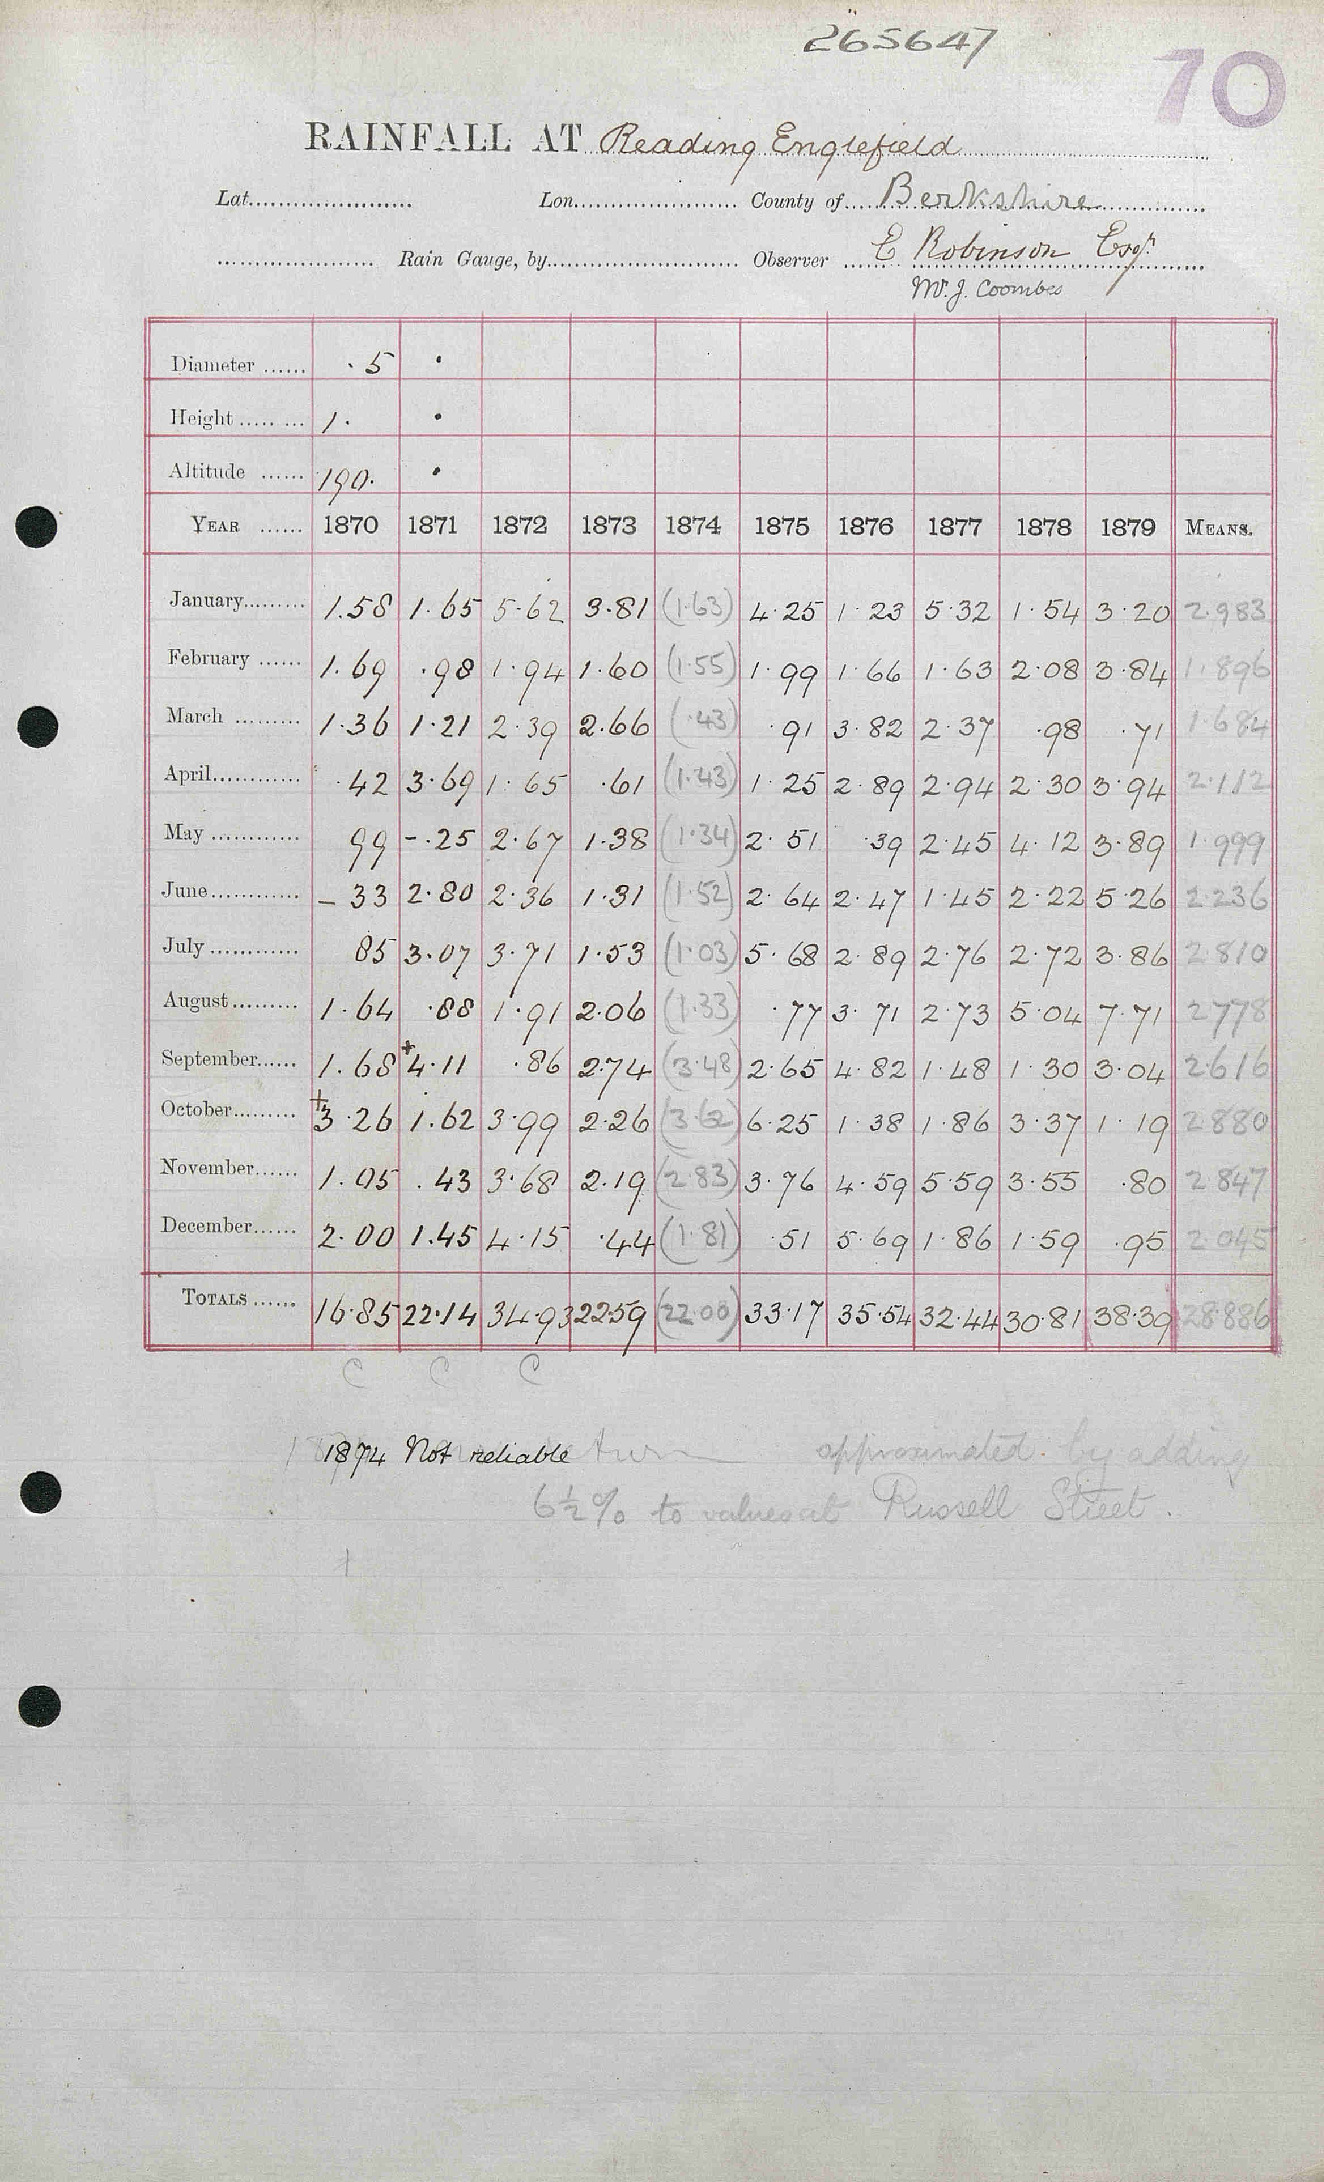 265647
70
RAINFALL AT Reading Englefield
Lat. Lon. County of Berkshire
Rain Gauge, by Observer E Robinson Esqr
Mr. J. Coombes
Diameter ·5 ·
Height 1. ·
Altitude 190. ·
YEAR 1870 1871 1872 1873 1874 1875 1876 1877 1878 1879 MEANS.
January 1.58 1.65 5.62 3.81 (1.63) 4.25 1.23 5.32 1.54 3.20 2.983
February 1.69 .98 1.94 1.60 (1.55) 1.99 1.66 1.63 2.08 3.84 1.896
March 1.36 1.21 2.39 2.66 (.43) .91 3.82 2.37 .98 .71 1.684
April .42 3.69 1.65 .61 (1.43) 1.25 2.89 2.94 2.30 3.94 2.112
May 99 -.25 2.67 1.38 (1.34) 2.51 .39 2.45 4.12 3.89 1.999
June - 33 2.80 2.36 1.31 (1.52) 2.64 2.47 1.45 2.22 5.26 2.236
July 85 3.07 3.71 1.53 (1.03) 5.68 2.89 2.76 2.72 3.86 2.810
August 1.64 .88 1.91 2.06 (1.33) .77 3.71 2.73 5.04 7.71 2.778
September 1.68 +4.11 .86 2.74 (3.48) 2.65 4.82 1.48 1.30 3.04 2.616
October +3.26 1.62 3.99 2.26 (3.62) 6.25 1.38 1.86 3.37 1.19 2.880
November 1.05 .43 3.68 2.19 (2.83) 3.76 4.59 5.59 3.55 .80 2.847
December 2.00 1.45 4.15 .44 (1.81) .51 5.69 1.86 1.59 .95 2.045
TOTALS 16.85 22.14 34.93 22.59 (22.00) 33.17 35.54 32.44 30.81 38.39 28.886
C C C
1874 Not reliable approximated by adding
6½% to values at Russell Street.